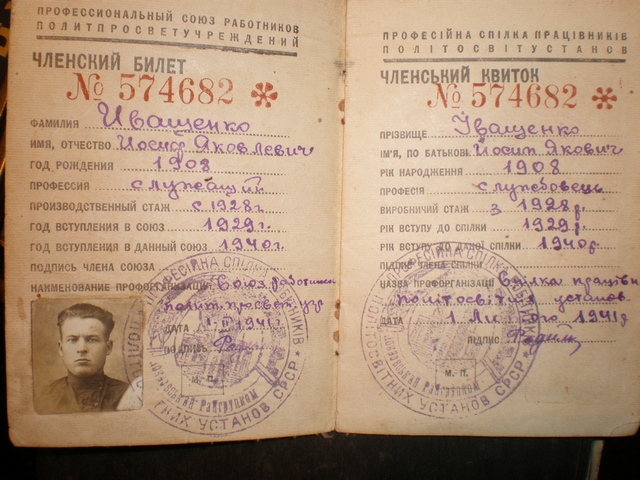 ПРОФЕССИОНАЛЬНЫЙ СОЮЗ РАБОТНИКОВ
ПОЛИТПРОСВЕТУЧРЕЖДЕНИЙ
ЧЛЕНСКИЙ БИЛЕТ
№ 574682
ФАМИЛИЯ Иващенко
ИМЯ, ОТЧЕСТВО Иосиф Яковлевич
ГОД РОЖДЕНИЯ 1908
ПРОФЕССИЯ служащий
ПРОИЗВОДСТВЕННЫЙ СТАЖ с 1928 г.
ГОД ВСТУПЛЕНИЯ В СОЮЗ 1929 г.
ГОД ВСТУПЛЕНИЯ В ДАННЫЙ СОЮЗ 1940 г.
ПОДПИСЬ ЧЛЕНА СОЮЗА
НАИМЕНОВАНИЕ ПРОФОРГАНИЗАЦИИ Союз работников
полит. просвет.
ДАТА 1941
ПОДПИСЬ
М. П.
ПРОФЕСІЙНА СПІЛКА
ОСВІТНИХ УСТАНОВ СРСР
ПРОФЕСІЙНА СПІЛКА ПРАЦІВНИКІВ
ПОЛІТОСВІТУСТАНОВ
ЧЛЕНСЬКИЙ КВИТОК
№ 574682
ПРІЗВИЩЕ Іващенко
ІМ'Я, ПО БАТЬКОВІ Йосип Якович
РІК НАРОДЖЕННЯ 1908
ПРОФЕСІЯ службовець
ВИРОБНИЧИЙ СТАЖ з 1928 р.
РІК ВСТУПУ ДО СПІЛКИ 1929 р.
РІК ВСТУПУ ДО ДАНОЇ СПІЛКИ 1940 р.
ПІДПИС ЧЛЕНА СПІЛКИ
НАЗВА ПРОФОРГАНІЗАЦІЇ Спілка праців
політосвітніх установ
ДАТА 1 Лютого 1941 р
ПІДПИС
М. П.
ПРОФЕСІЙНА СПІЛКА
ОСВІТНИХ УСТАНОВ СРСР